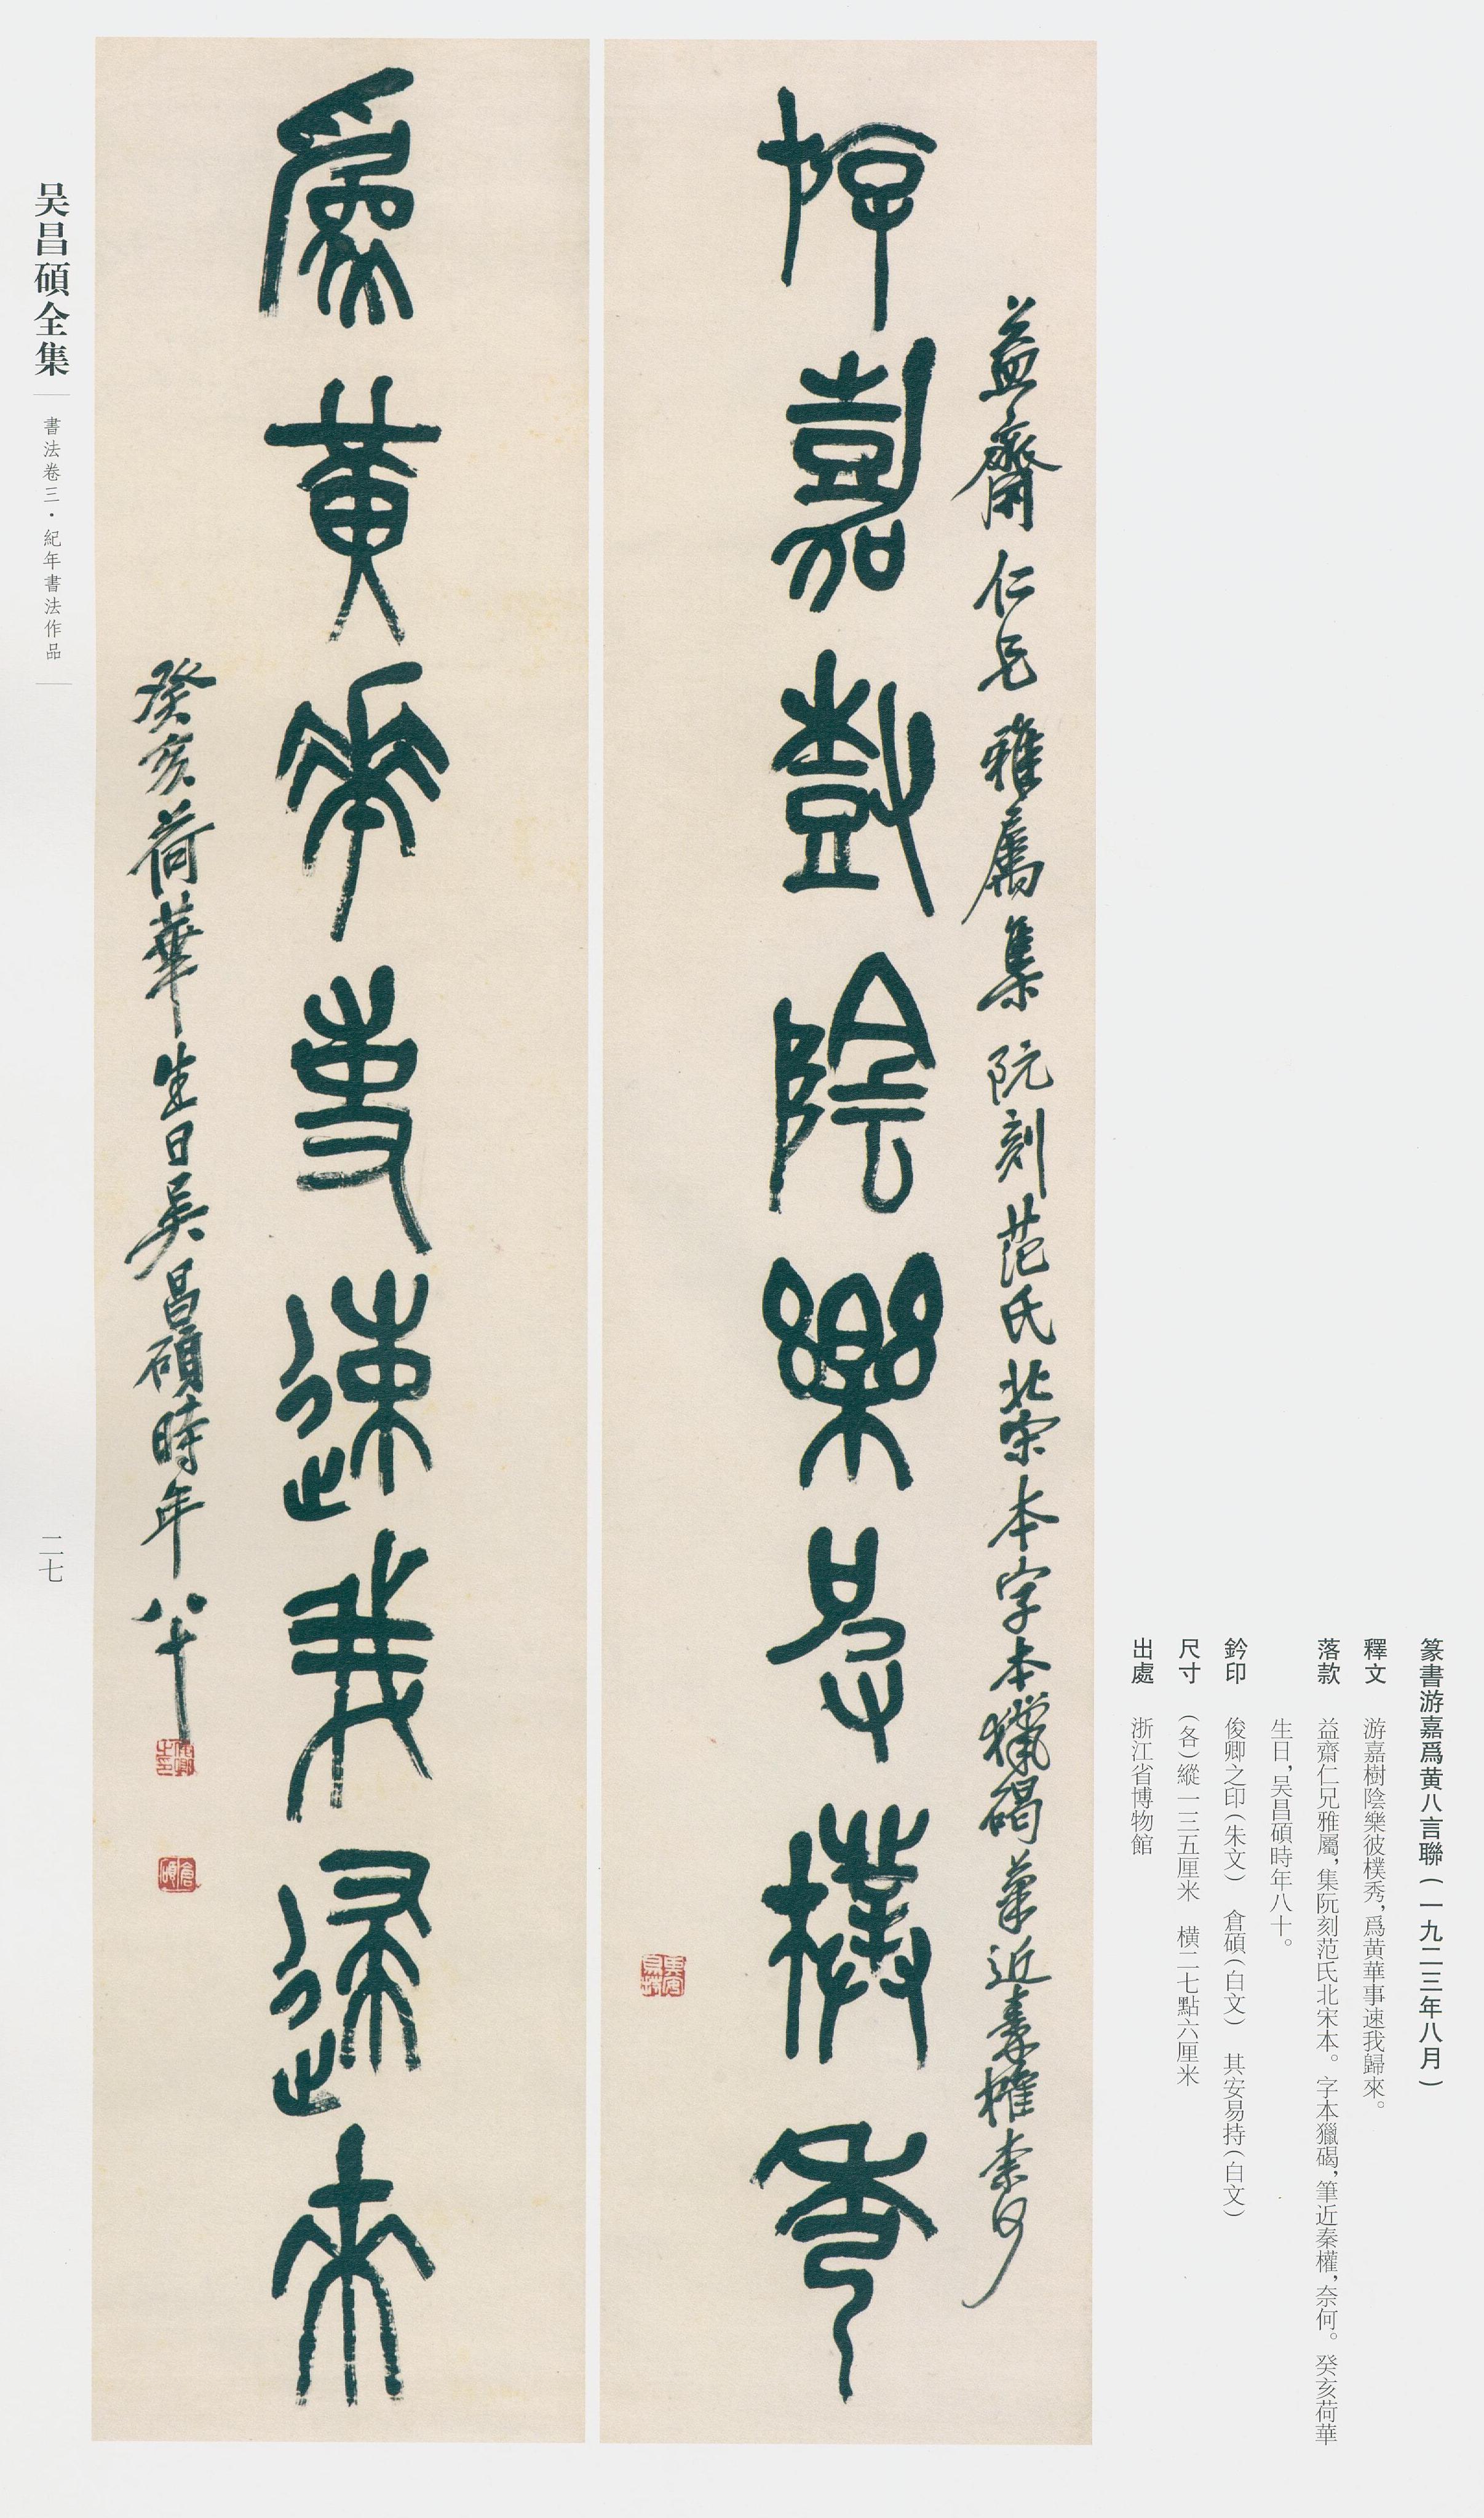 篆書游嘉爲黄八言聯(一九二三年八月)
釋文 游嘉樹陰樂彼樸秀,爲黄華事速我歸來。
落款 益齋仁兄雅屬,集阮刻范氏北宋本。字本獵碣,筆近秦權,奈何。癸亥荷華
生日,吴昌碩時年八十。
鈐印 俊卿之印(朱文) 倉碩(白文) 其安易持(白文)
尺寸 (各)縱一三五厘米 橫二七點六厘米
出處 浙江省博物館
益齋仁兄雅屬集阮刻范氏北宋本字本獵碣筆近秦權柰何
游嘉樹陰樂彼樸秀
爲黄華事速我歸來
癸亥荷華生日吴昌碩時年八十
倉碩
吴昌碩全集
書法卷三·紀年書法作品
二七